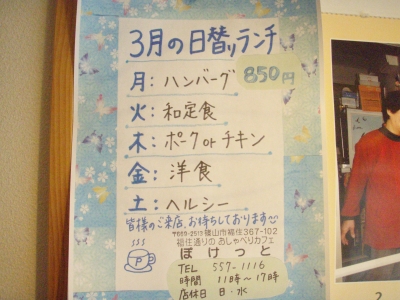 3月の日替りランチ
月:ハンバーグ 850円
火:和定食
木:ポークorチキン
金:洋食
土:ヘルシー
皆様のご来店、お待ちしております
〒669-2513 篠山市福住367-102
福住通りのおしゃべりカフェ
ぽけっと
P
TEL 557-1116
時間 11時〜17時
店休日 日・水
2